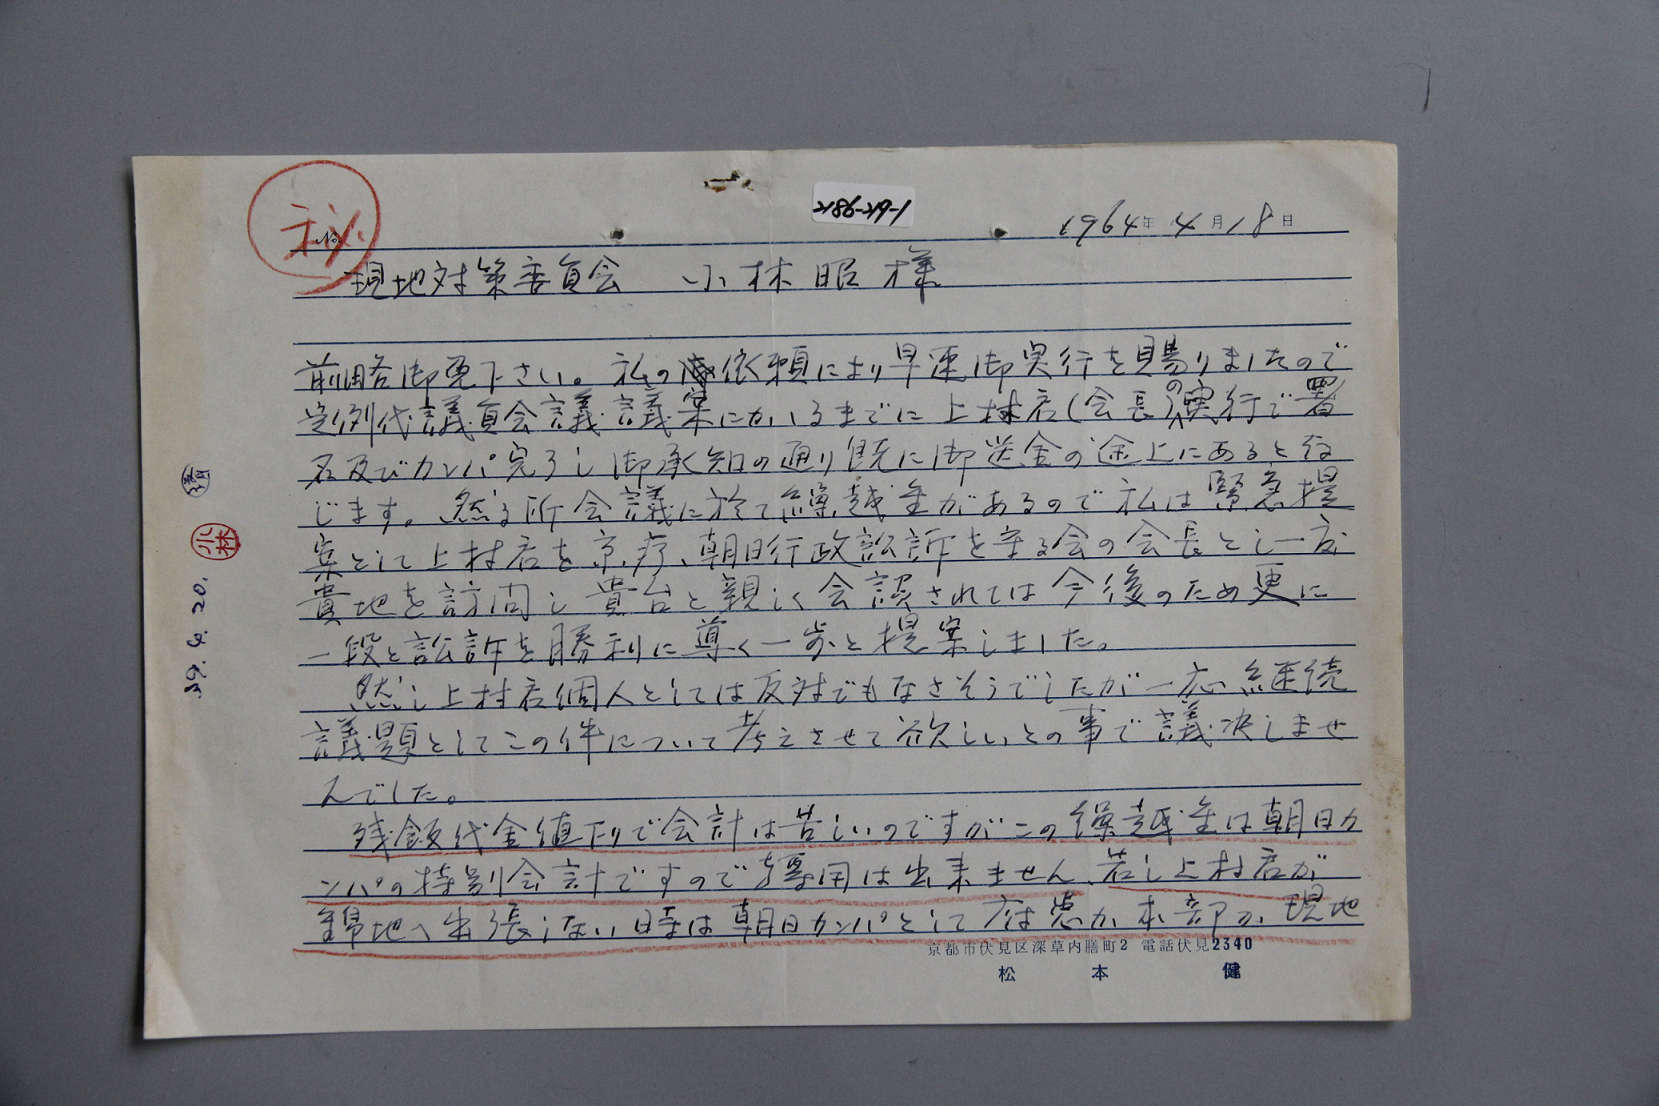 秘
2186-29-1
1964年4月18日
現地対策委員会 小林昭様
前略御免下さい。私の依頼により早速御実行を賜りましたので
定例代議員会議議案にかゝるまでに上村君(会長)の実行で署
名及びカンパ完了し御承知の通り既に御送金の途上にあると存
じます。然る所会議に於て繰越金があるので私は緊急提
案として上村君を京療、朝日行政訟訴を守る会の会長とし一度
貴地を訪問し貴台と親しく会談されては今後のため更に
一段と訟訴を勝利に導く一歩と提案しました。
然し上村君個人としては反対でもなさそうでしたが一応継続
議題としてこの件について考えさせて欲しいとの事で議決しませ
んでした。
残飯代金値下りで会計は苦しいのですがこの繰越金は朝日カ
ンパの特別会計ですので専用は出来ません、若し上村君が
錦地へ出張しない時は朝日カンパとして か本部か現地
京都市伏見区深草内膳町2 電話伏見2340
松本健
済
小林
39.4.20.